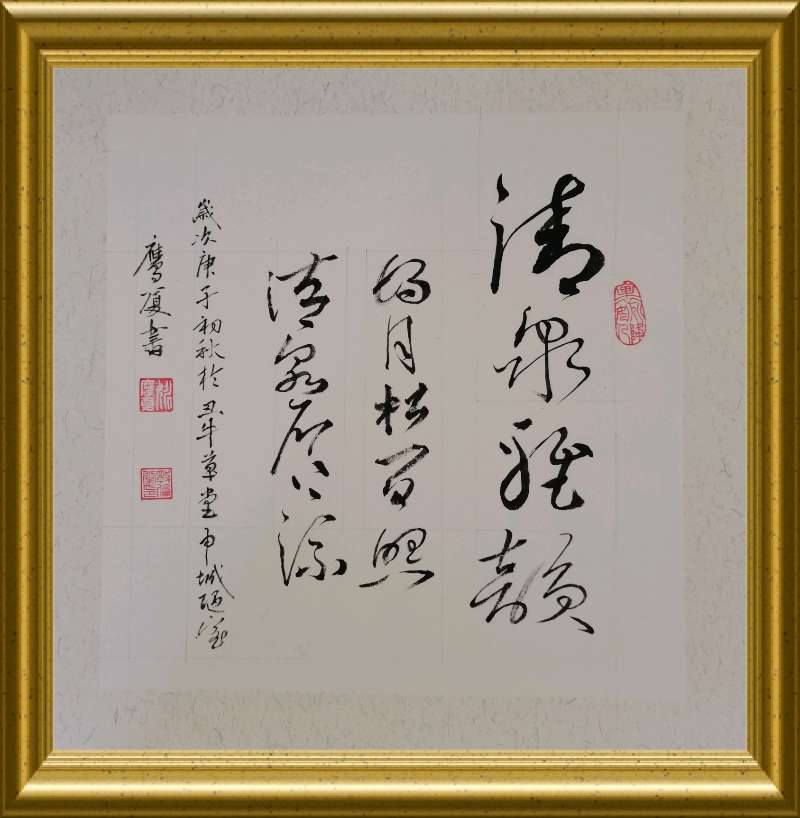 清泉雅韻
明月松間照
清泉石上流
歲次庚子初秋於丑牛草堂申城陋室
鹰厦書